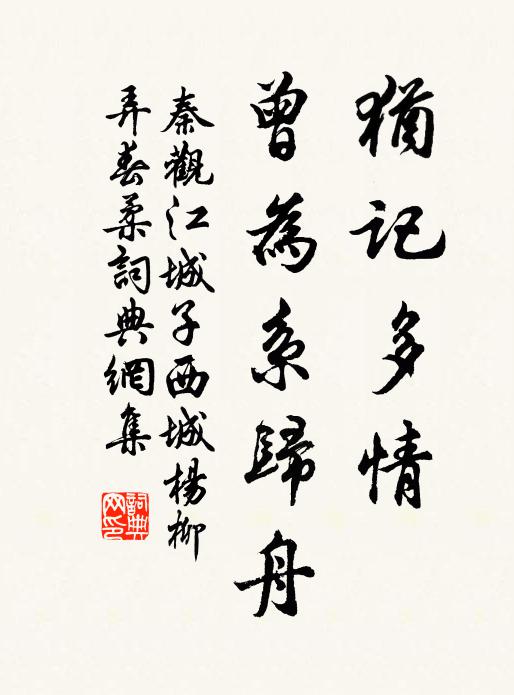 猶記多情
曾為系歸舟
秦觀江城子西城楊柳
弄春柔詞典網集
詞典
网印